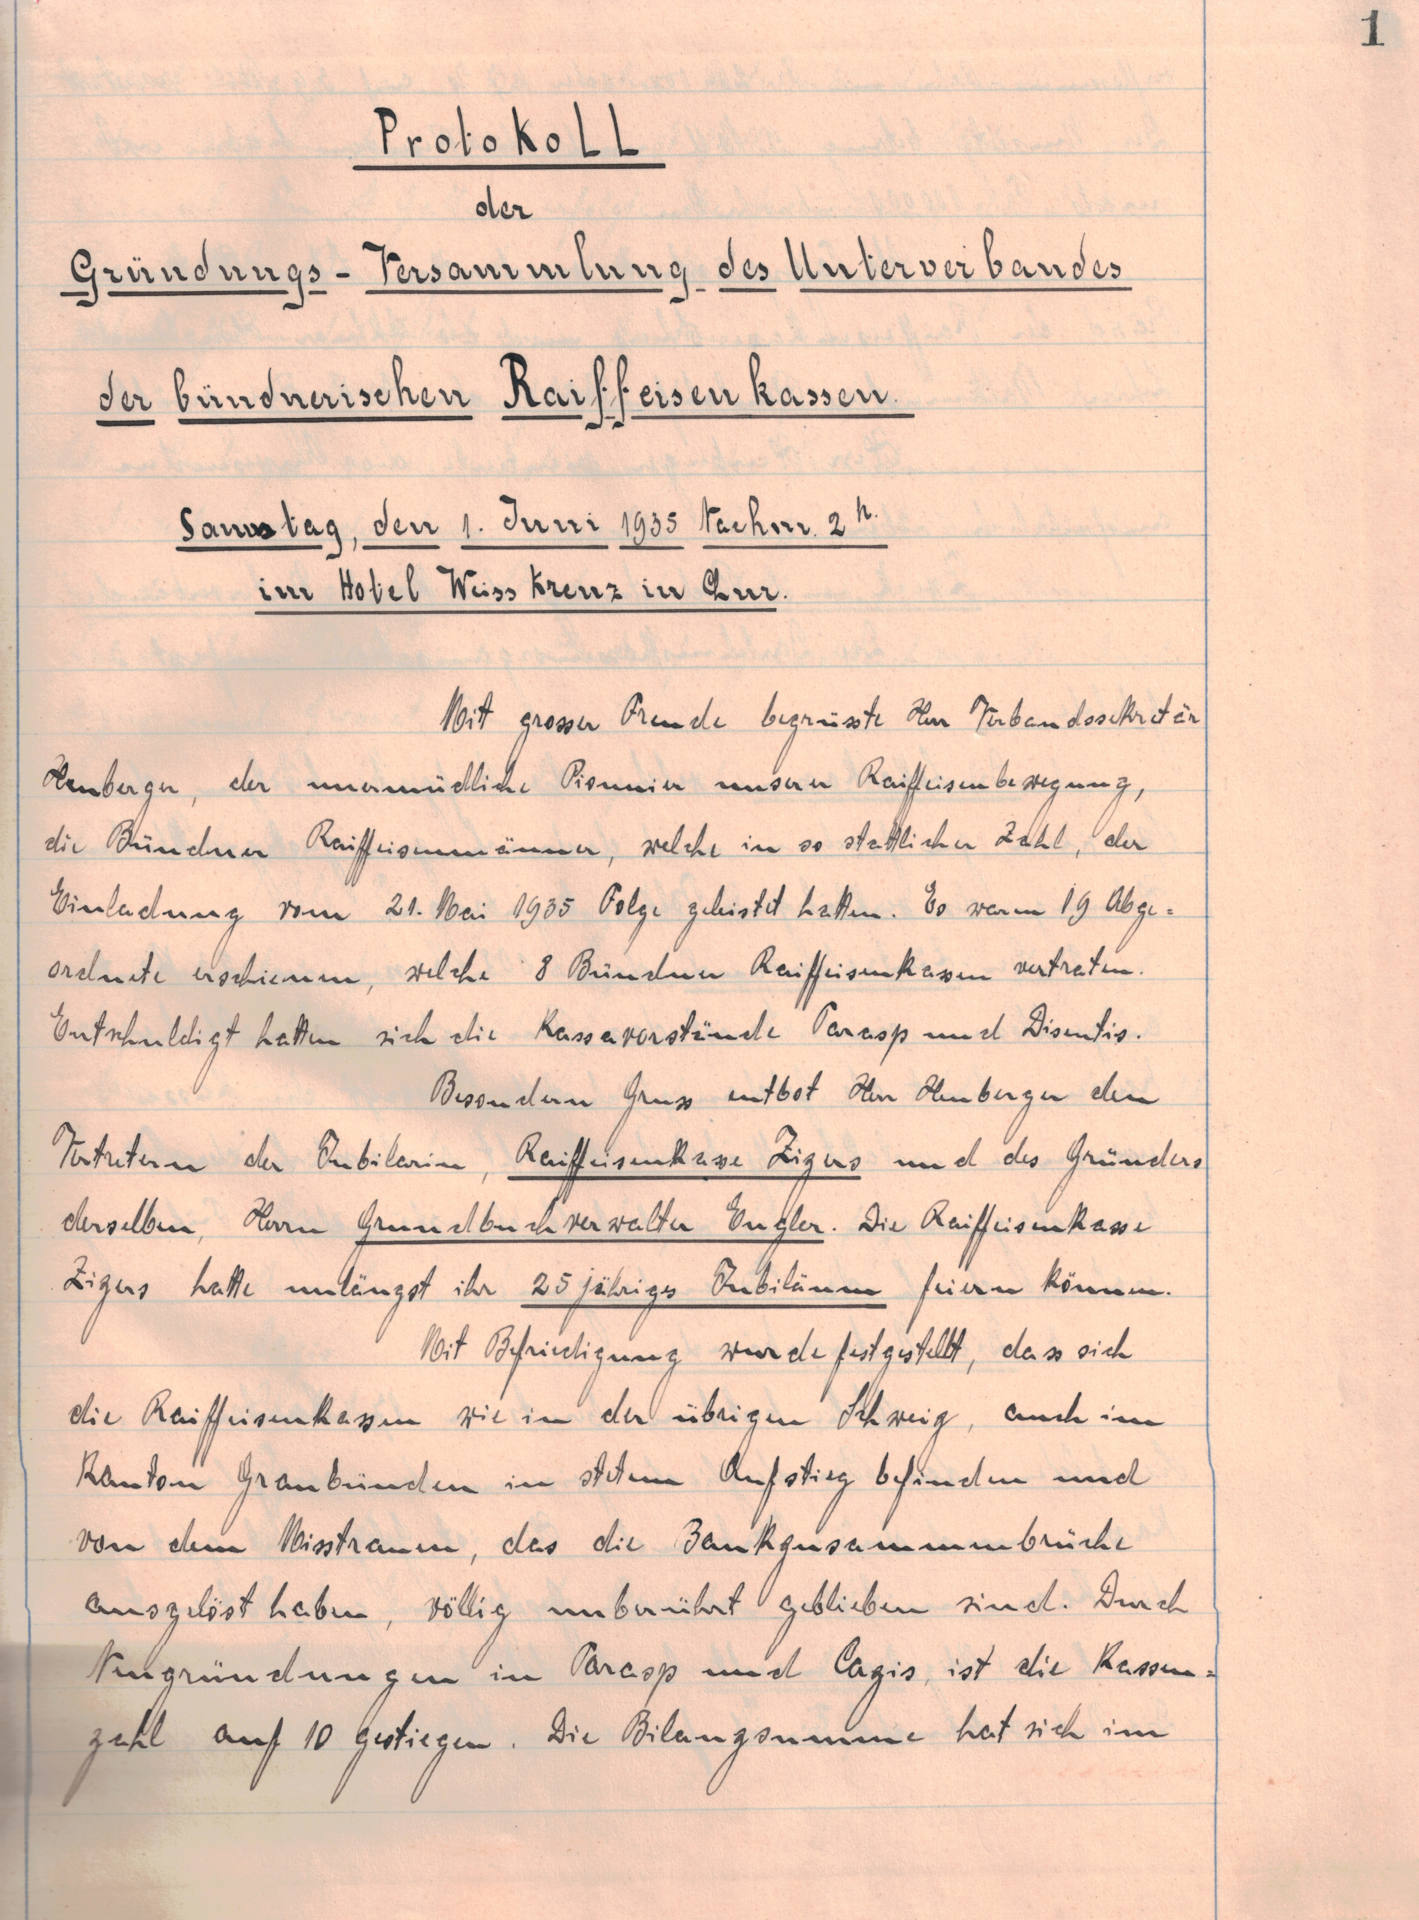 1
Protokoll
der
Gründungs-Versammlung des Unterverbandes
der bündnerischen Raiffeisenkassen.
Samstag, den 1. Juni 1935 Nachm. 2 h.
im Hotel Weisskreuz in Chur.
Mit grosser Freude begrüsste Herr Verbandssekretär
Heuberger, der unermüdliche Pionnier unserer Raiffeisenbewegung,
die Bündner Raiffeisenmänner, welche in so stattlicher Zahl, der
Einladung vom 21. Mai 1935 Folge geleistet hatten. Es waren 19 Abge=
ordnete erschienen, welche 8 Bündner Raiffeisenkassen vertraten.
Entschuldigt hatten sich die Kassavorstände Tarasp und Disentis.
Besondern Gruss entbot Herr Heuberger den
Vertretern der Jubilarin, Raiffeisenkasse Zizers und des Gründers
derselben, Herrn Grundbuchverwalter Engler. Die Raiffeisenkasse
Zizers hatte unlängst ihr 25 jähriges Jubiläum feiern können.
Mit Befriedigung wurde festgestellt, dass sich
die Raiffeisenkassen wie in der übrigen Schweiz, auch im
Kanton Graubünden in stetem Aufstieg befinden und
von dem Misstrauen, das die Bankzusammenbrüche
ausgelöst haben, völlig unberührt geblieben sind. Durch
Neugründungen in Tarasp und Cazis, ist die Kassen=
zahl auf 10 gestiegen. Die Bilanzsumme hat sich im